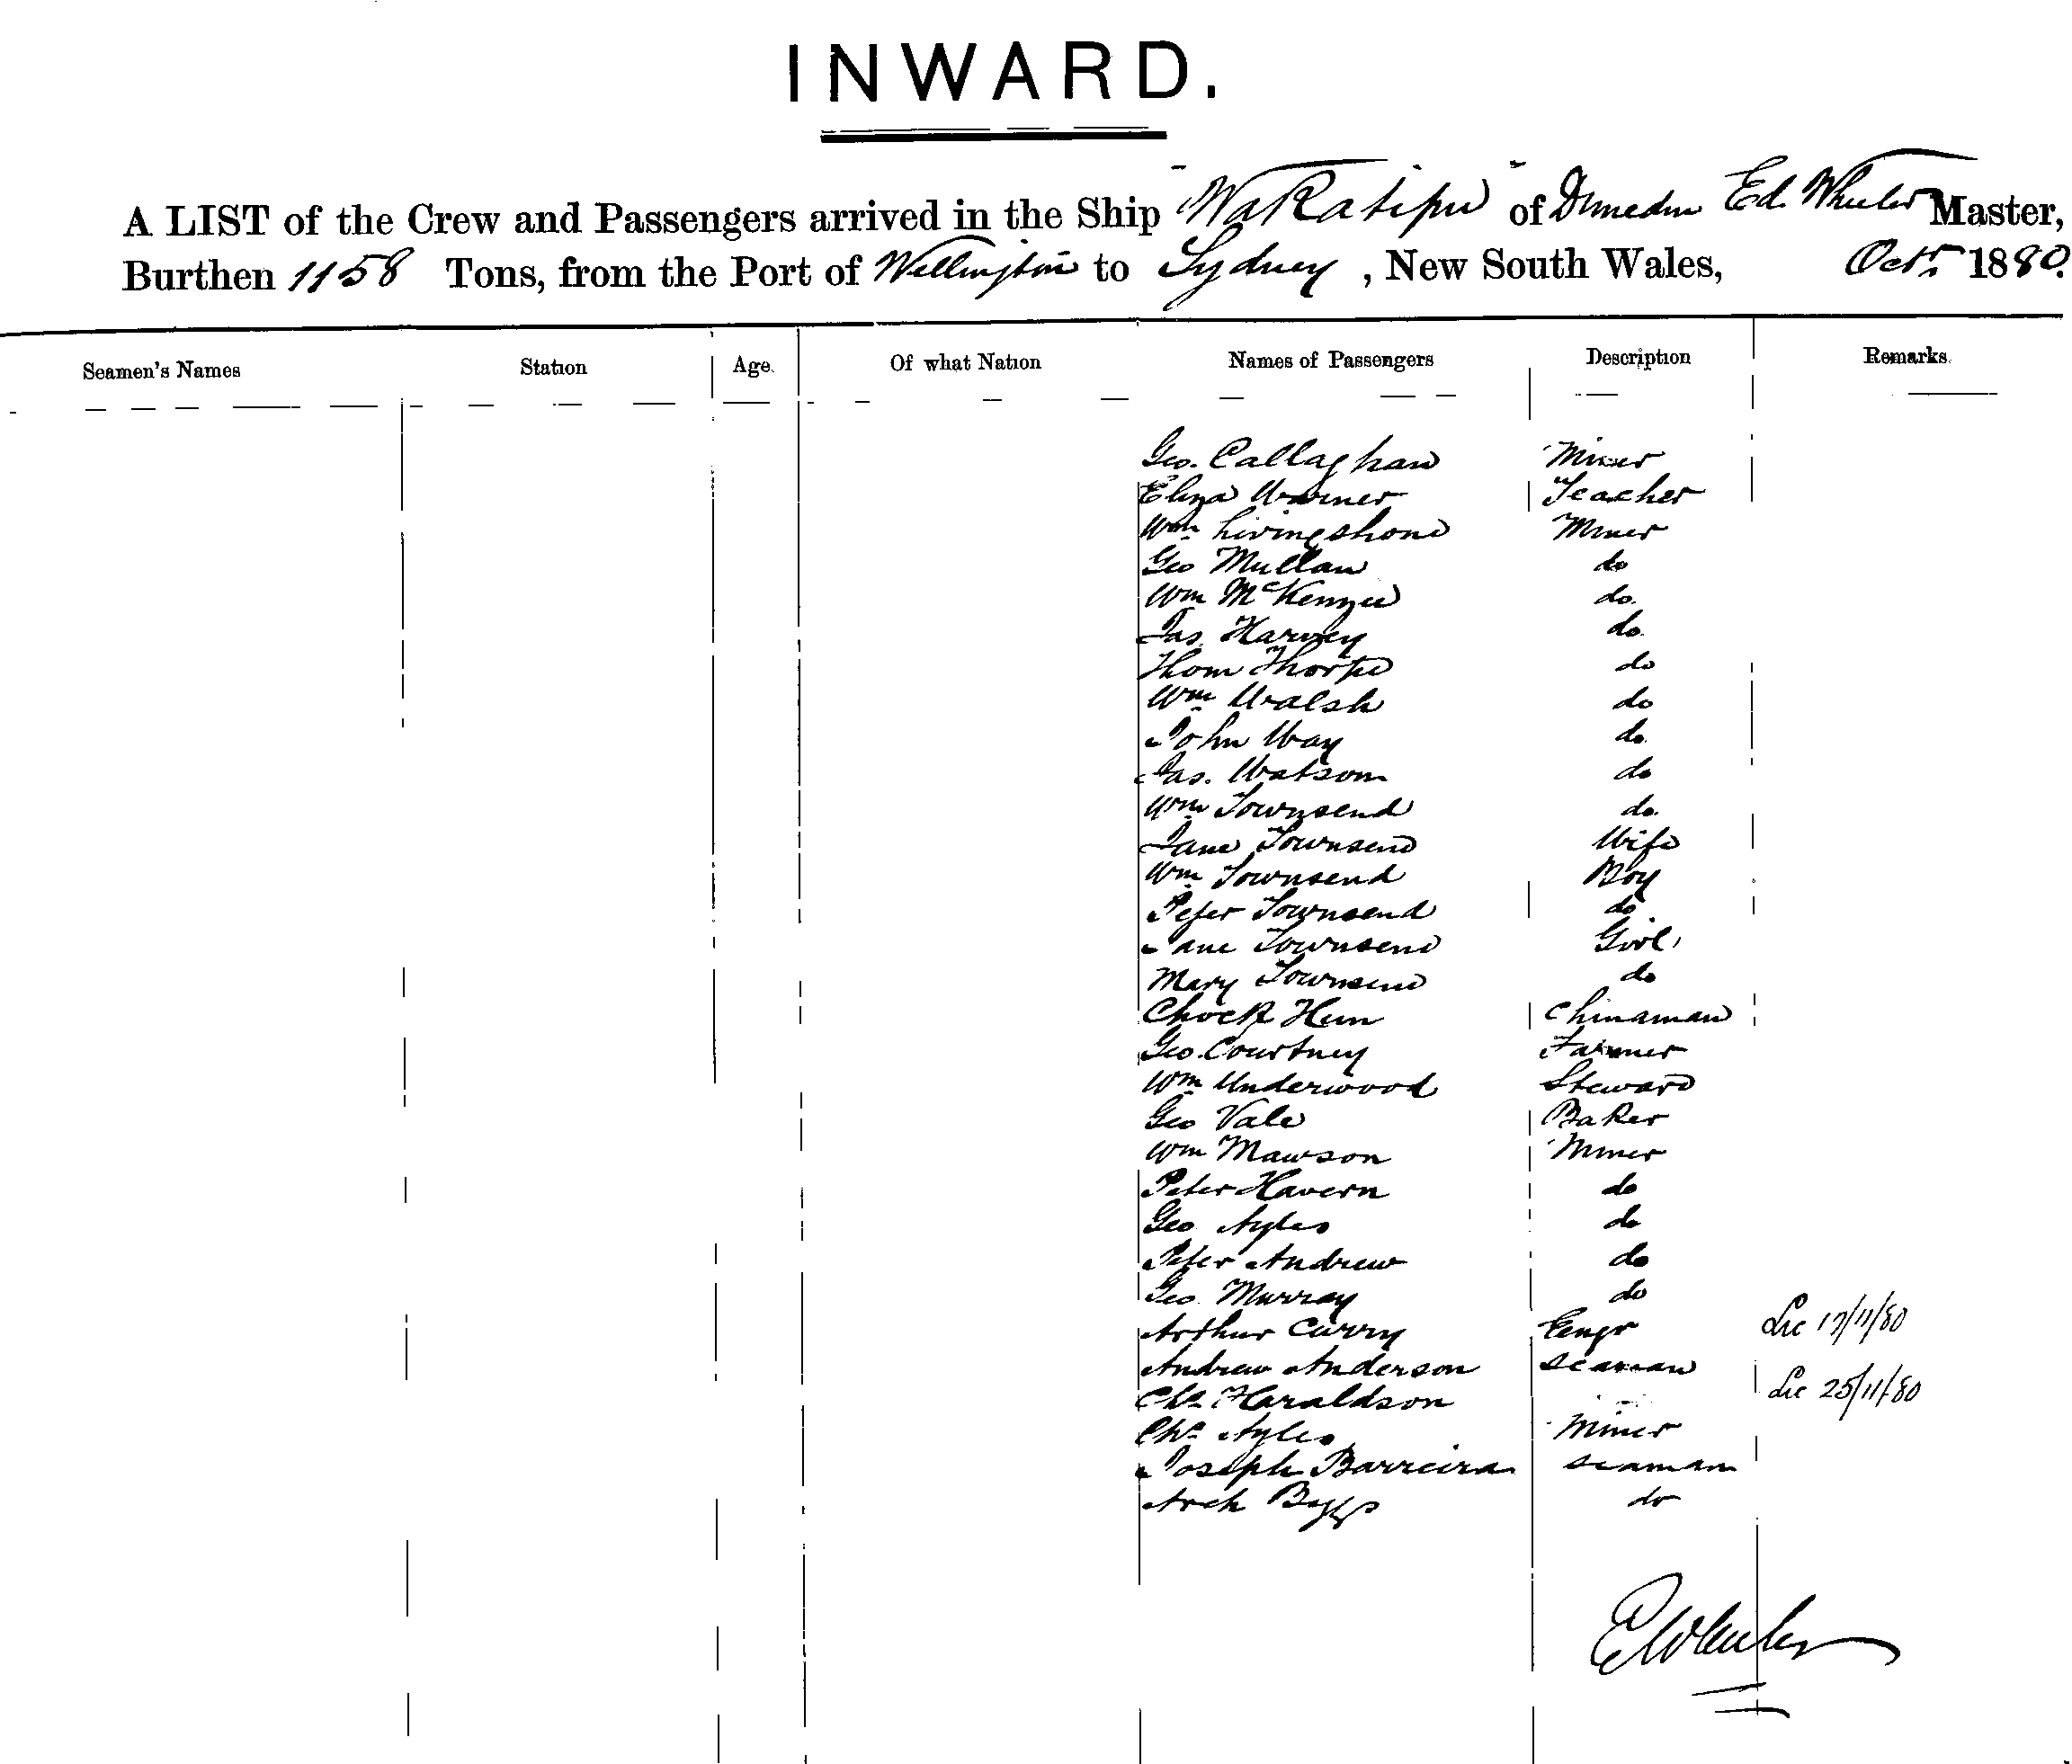 INWARD.
A LIST of the Crew and Passengers arrived in the Ship "Wakatipu" of Dunedin Ed. Wheeler Master,
Burthen 1158 Tons, from the Port of Wellington to Sydney, New South Wales, Octr. 1880.
Seamen's Names Station Age. Of what Nation Names of Passengers Description Remarks.
Geo. Callaghan Miner
Eliza Warner Teacher
Wm Livingstone Miner
Geo Mullan do
Wm McKenzie do.
Jas. Harvey do.
Thom Thorpe do
Wm Walsh do
John Way do.
Jas. Watson do
Wm Townsend do.
Jane Townsend Wife
Wm Townsend Boy
Peter Townsend do
Jane Townsend Girl
Mary Townsend do
Chock Hun Chinaman
Geo. Courtney Farmer
Wm Underwood Steward
Geo Vale Baker
Wm Mawson Miner
Peter Havern do
Geo Ayles do
Peter Andrew do
Geo. Murray do
Arthur Curry Eengr Lic 17/11/80
Andrew Anderson Seaman
Chs. Haraldson Lic 25/11/80
Chs. Ayles Miner
Joseph Barreira seaman
Arch do
E Wheeler